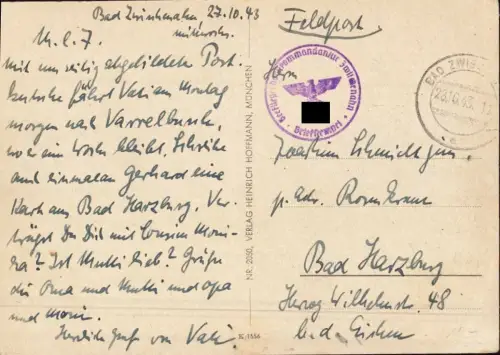 Bad Zwischenahn 27.10.43
mittwochs.
M. l. J.
Mit um seitig abgebildeter Post-
kutsche fährt Vati am Montag
morgen nach Varrelbusch,
wo er ein Woche bleibt. Schreibe
auch einmal an Gerhard eine
Karte aus Bad Harzburg. Ver-
trägst Du Dich mit Cousine Moni-
ka? Ist Mutti lieb? Grüße
die Oma und Mutti und Opa
und Moni.
Herzlich Gruß von Vati.
NR. 2050, VERLAG HEINRICH HOFFMANN, MÜNCHEN
K/1556
Feldpost.
Herrn
kommandantur Zwischenahn
Briefstempel
BAD ZWISCHEN
28.10.43.
Joachim Schmidt jun.
p. Adr. Rosenkranz
Bad Harzburg
Herzog Wilhelmstr. 48
b. d. Eichen